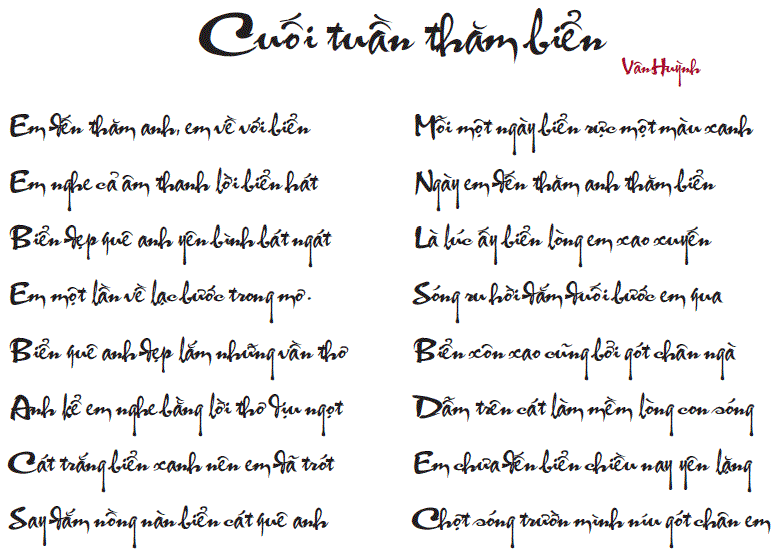 Cuối tuần thăm biển
Vân Huỳnh
Em đến thăm anh, em về với biển
Em nghe cả âm thanh lời biển hát
Biển đẹp quê anh yên bình bát ngát
Em một lần về lạc bước trong mơ.
Biển quê anh đẹp lắm những vần thơ
Anh kể em nghe bằng lời thơ dịu ngọt
Cát trắng biển xanh nên em đã trót
Say đắm nồng nàn biển cát quê anh
Mỗi một ngày biển rực một màu xanh
Ngày em đến thăm anh thăm biển
Là lúc ấy biển lòng em xao xuyến
Sóng ru hời đắm đuối bước em qua
Biển xôn xao cũng bởi gót chân ngà
Dẫm trên cát làm mềm lòng con sóng
Em chưa đến biển chiều nay yên lặng
Chợt sóng trườn mình níu gót chân em